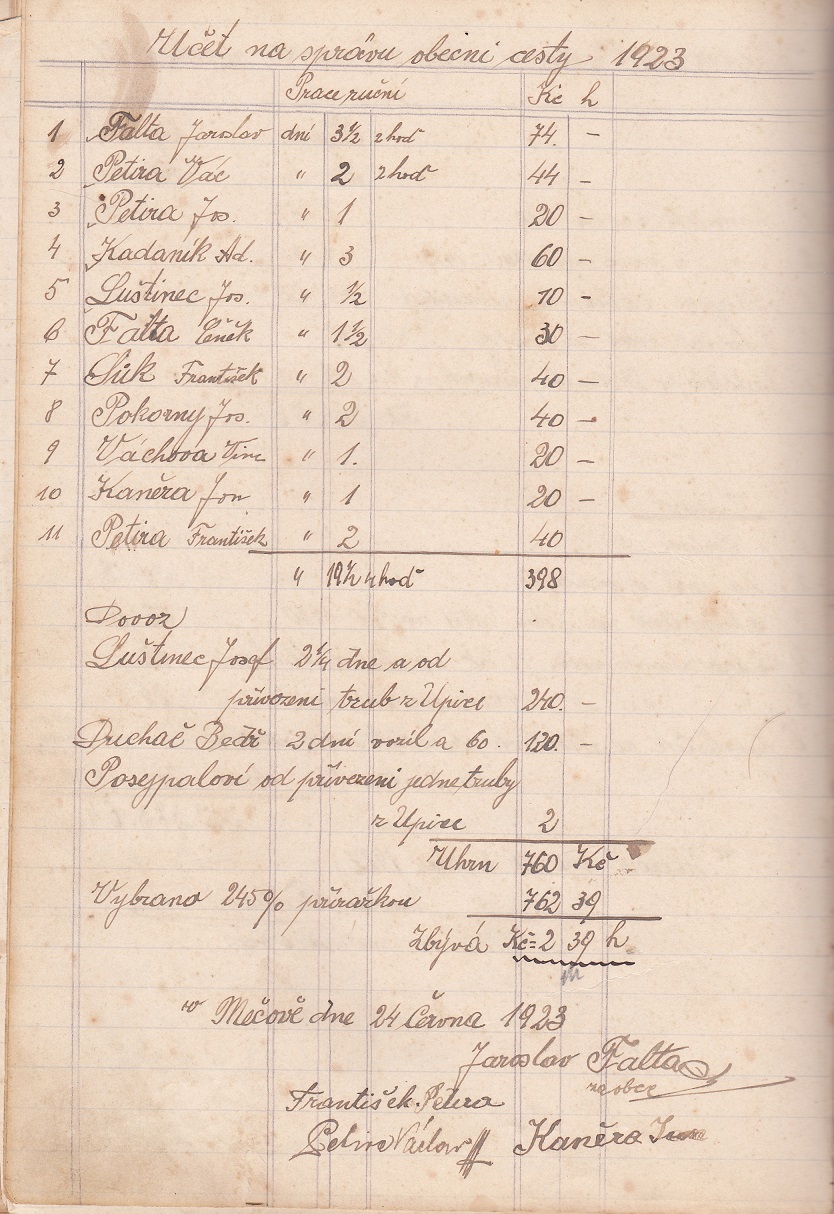 Učet na správu obecni cesty 1923
Prace ruční Kč h
1 Falta Jaroslav dní 3½ 2 hod 74. –
2 Petira Vác " 2 2 hod 44 –
3 Petira Jos. " 1 20 –
4 Kadaník Ad. " 3 60 –
5 Luštinec Jos. " ½ 10 -
6 Falta Čeněk " 1½ 30 –
7 Suk František " 2 40 –
8 Pokorny Jos. " 2 40 –
9 Váchova " 1. 20 –
10 Kaněra Jan " 1 20 –
11 Petira František " 2 40
" 19½ 4 hod 398
Dovoz
Luštinec Josef 2¼ dne a od
přivození trub z Upice 240. –
Duchač Bedř 2 dní vozil a 60. 120. –
Posejpaloví od přivezeni jedne truby
z Upice 2
Uhrn 760 Kč
Vybrano 245% přiražkou 762 39
Zbývá Kč=2 39 h
v Mečově dne 24 Června 1923
Jaroslav Falta
za obec
František Petira
Petira Václav Kaněra